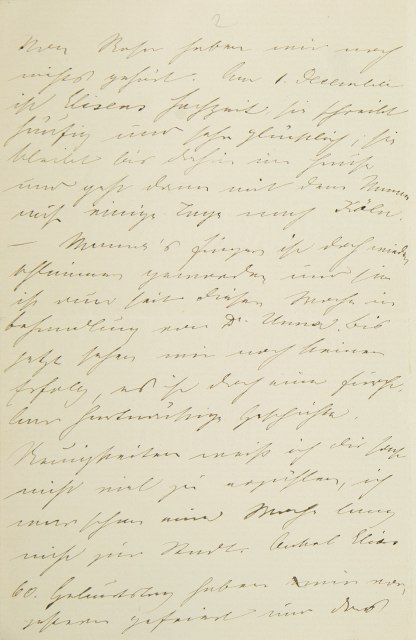 2
Von Rosa haben wir noch
nichts gehört. Am 1. December
ist Elisens Hochzeit, sie schreibt
häufig und sehr glücklich; sie
bleibt bis dahin im Hause
und geht dann mit dem Manne
auf einige Tage nach Köln.
— Mama's Finger ist doch wieder
schlimmer geworden und sie
ist nun seit dieser Woche in
Behandlung von Dr. Unna, bis
jetzt sehen wir noch keinen
Erfolg, es ist doch eine furcht-
bar hartnäckige Geschichte.
Neuigkeiten weiß ich dir sonst
nicht viel zu erzählen, ich
war schon eine Woche lang
nicht zur Stadt. Onkel Elias
60. Geburtstag haben wir vor-
gestern gefeiert und das